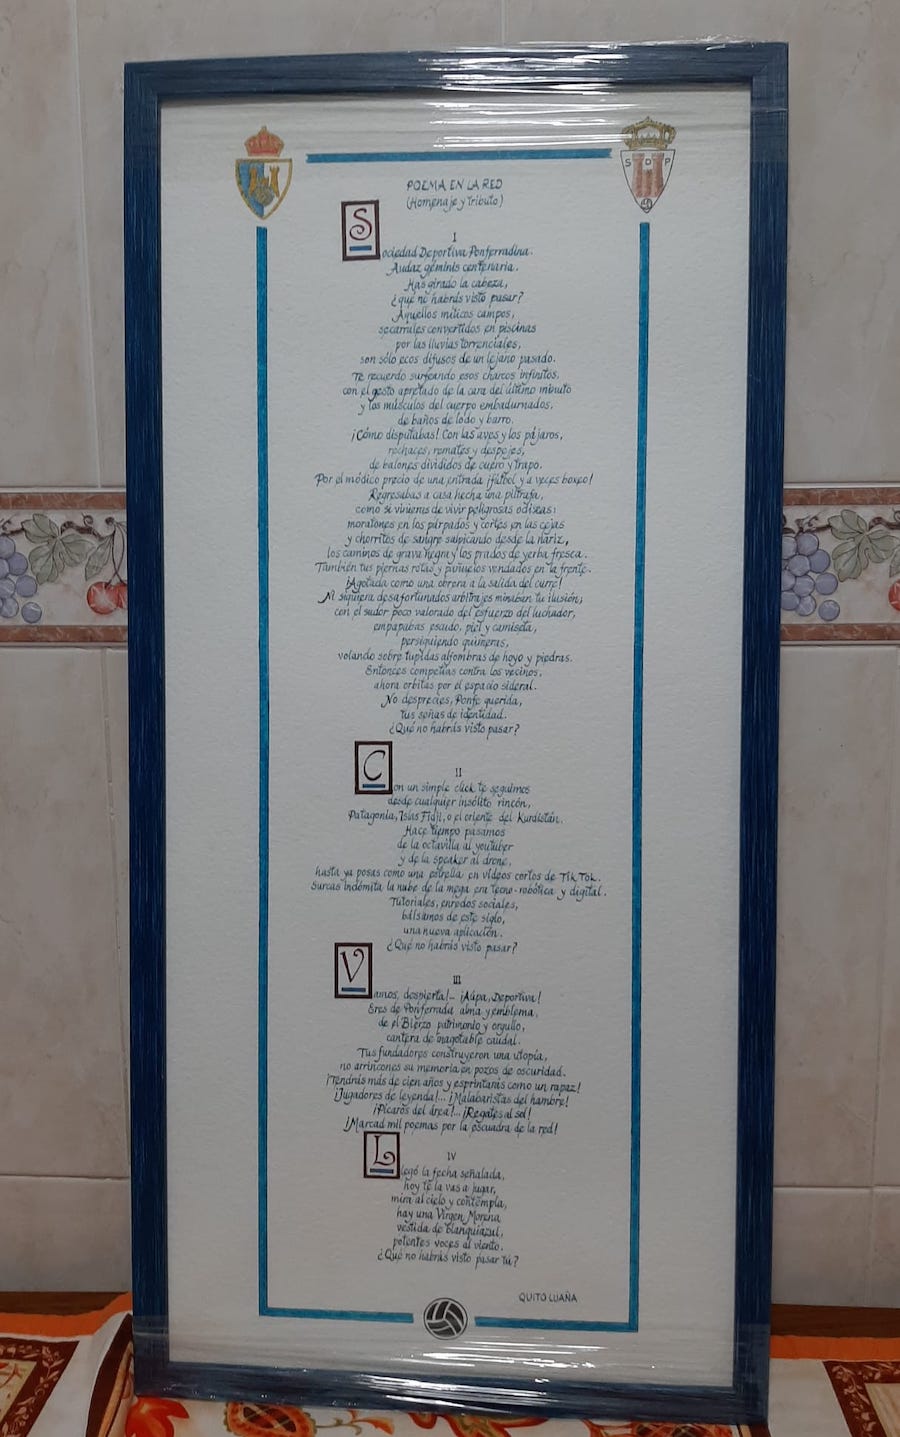 S D P
POEMA EN LA RED
(Homenaje y tributo)
I
Sociedad Deportiva Ponferradina.
Audaz géminis centenaria.
Has girado la cabeza,
¿qué no habrás visto pasar?
Aquellos míticos campos,
secarrales convertidos en piscinas
por las lluvias torrenciales,
son sólo ecos difusos de un lejano pasado.
Te recuerdo surfeando esos charcos infinitos,
con el gesto apretado de la cara del último minuto
y los músculos del cuerpo embadurnados,
de baños de lodo y barro.
¡Cómo disputabas! Con las aves y los pájaros,
rechaces, remates y despejes,
de balones divididos de cuero y trapo.
Por el módico precio de una entrada ¡fútbol y a veces boxeo!
Regresabas a casa hecha una piltrafa,
como si vinieras de vivir peligrosas odiseas:
moratones en los párpados y cortes en las cejas
y chorritos de sangre salpicando desde la nariz,
los caminos de grava negra y los prados de yerba fresca.
También tus piernas rotas y pañuelos vendados en la frente.
¡Agotada como una obrera a la salida del curre!
Ni siquiera desafortunados arbitrajes minaban tu ilusión;
con el sudor poco valorado del esfuerzo del luchador,
empapabas escudo, piel y camiseta,
persiguiendo quimeras,
volando sobre tupidas alfombras de hoyo y piedras.
Entonces competías contra los vecinos,
ahora orbitas por el espacio sideral.
No desprecies, Ponfe querida,
tus señas de identidad.
¿Qué no habrás visto pasar?
II
Con un simple click te seguimos
desde cualquier insólito rincón,
Patagonia, Islas Fidji, o el oriente del Kurdistán.
Hace tiempo pasamos
de la octavilla al youtuber
y de la speaker al drone,
hasta ya posas como una estrella en vídeos cortos de Tik Tok.
Surcas indómita la nube de la mega era tecno-robótica y digital.
Tutoriales, enredos sociales,
bálsamos de este siglo,
una nueva aplicación.
¿Qué no habrás visto pasar?
III
Vamos, despierta!- ¡Aúpa, Deportiva!
Eres de Ponferrada alma y emblema,
de el Bierzo patrimonio y orgullo,
cantera de inagotable caudal.
Tus fundadores construyeron una utopía,
no arrincones su memoria en pozos de oscuridad.
¡Tendrás más de cien años y esprintarás como un rapaz!
¡Jugadores de leyenda!... ¡Malabaristas del hambre!
¡Pícaros del área!... ¡Regates al sol!
¡Marcad mil poemas por la escuadra de la red!
IV
Llegó la fecha señalada,
hoy te la vas a jugar,
mira al cielo y contempla,
hay una Virgen Morena
vestida de blanquiazul,
potentes voces al viento.
¿Qué no habrás visto pasar tú?
QUITO LUAÑA